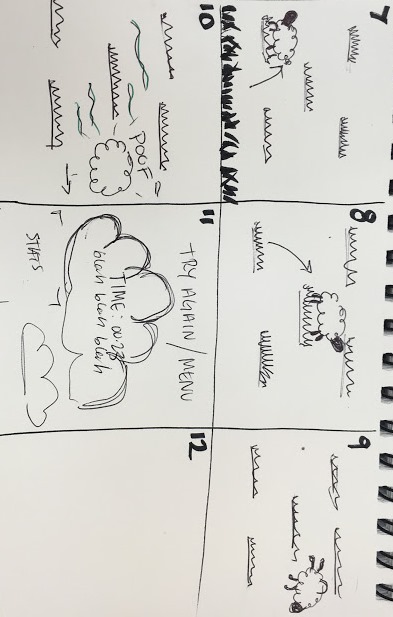 7
8
9
10
POOF
11
TRY AGAIN/MENU
TIME: 00:23
blah blah blah
STATS
12